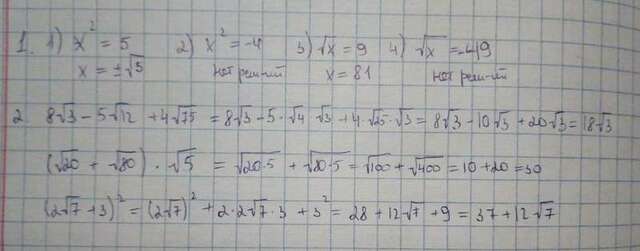 1. 1) x² = 5 2) x² = -4 3) √x = 9 4) √x = -49
x = ±√5 нет реш-ий x = 81 нет реш-ий
2. 8√3 - 5√12 + 4√75 = 8√3 - 5·√4·√3 + 4·√25·√3 = 8√3 - 10√3 + 20√3 = 18√3
(√20 + √80)·√5 = √20·5 + √80·5 = √100 + √400 = 10 + 20 = 30
(2√7 + 3)² = (2√7)² + 2·2√7·3 + 3² = 28 + 12√7 + 9 = 37 + 12√7